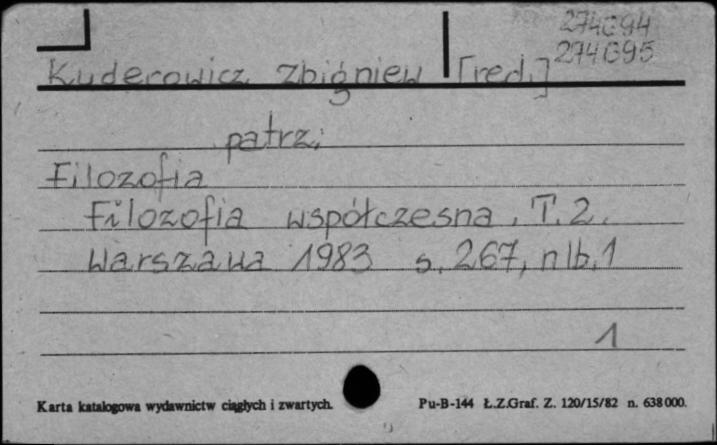 274094
274095
Kuderowicz Zbigniew [red.]
patrz:
Filozofia
Filozofia współczesna. T. 2.
Warszawa 1983 s. 267, nlb. 1
1
Karta katalogowa wydawnictw ciągłych i zwartych. Pu-B-144 Ł.Z.Graf. Z. 120/15/82 n. 638 000.